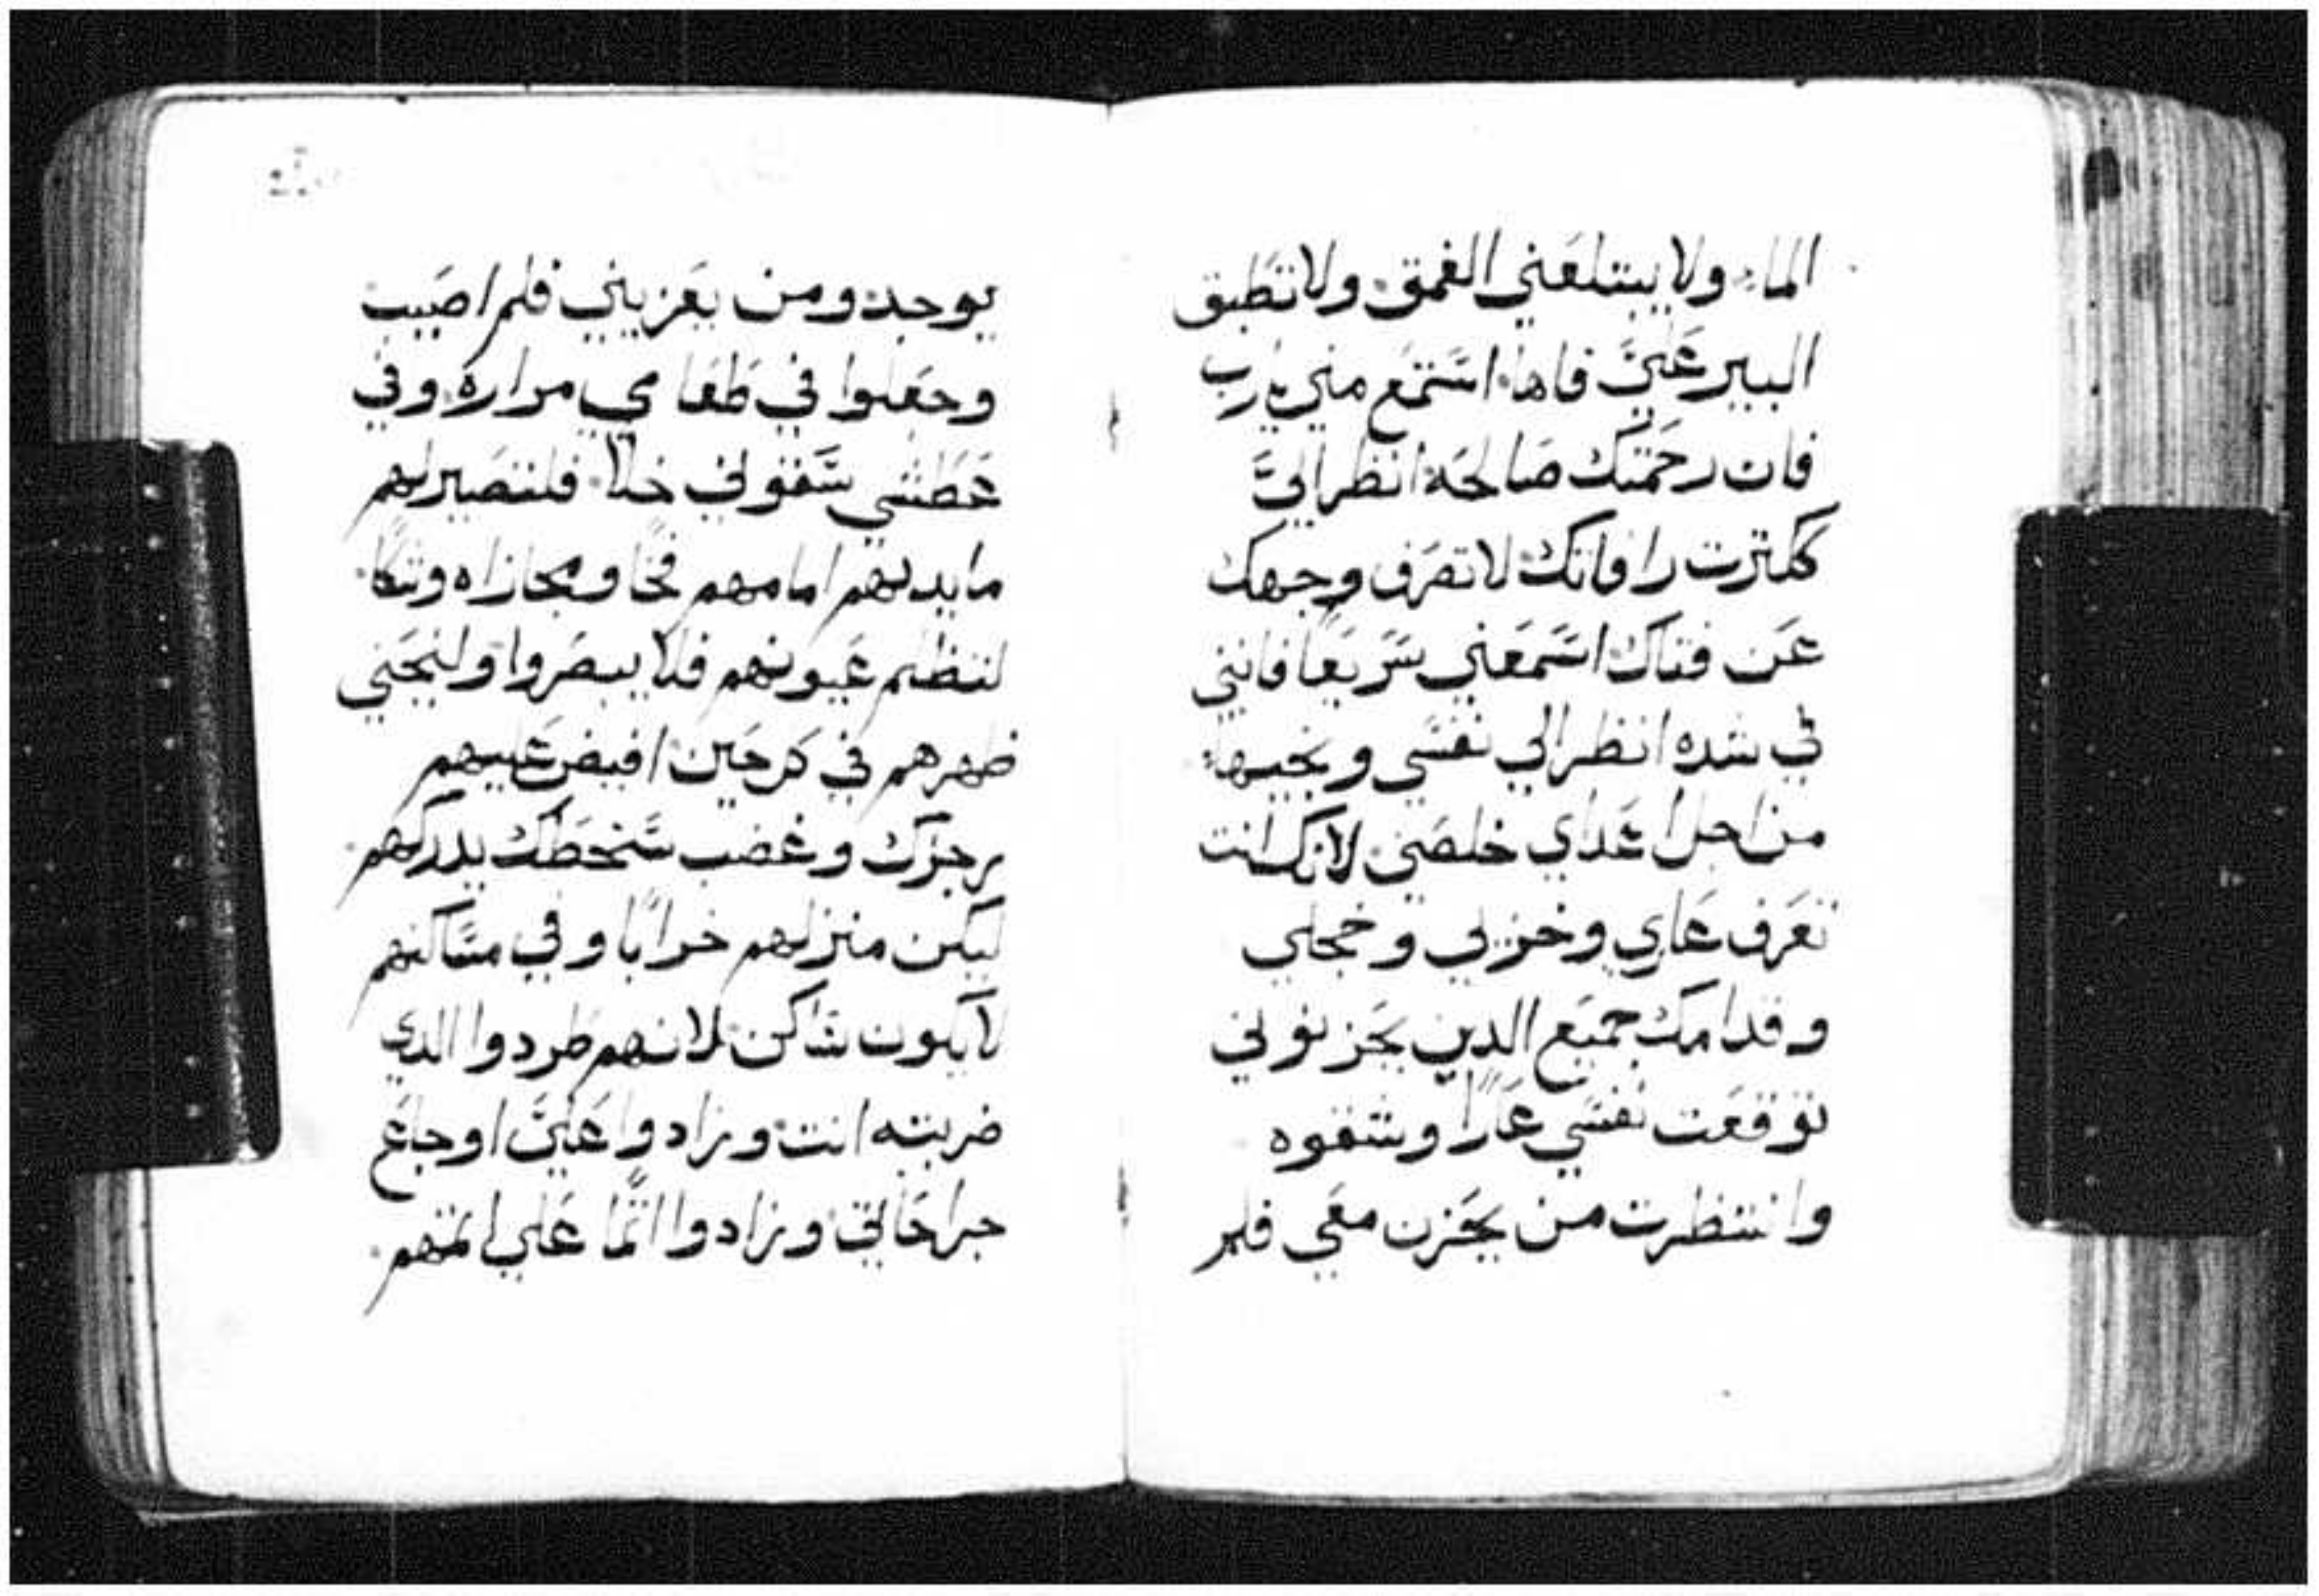 الماء ولا يبتلعني الغمق ولا تطبق
البير عَليَّ فاها استمع مني يارب
فان رحمتك صالحه انظر اليَّ
ككترت رافاتك لا تصرف وجهك
عن فتاك اسمعني سريعا فانني
في شده انظر الي نفسي ونجيها
من اجل اعداي خلصني لانك انت
تعرف عاري وخزيي وخجلي
وقدامك جميع الدين يحزنوني
توقعت نفسي عارًا وشقوه
وانتظرت من يحزن معي فلم
يوجد ومن يعزيني فلم اصيب
وجعلوا في طعامي مراره وفي
عطشي سقوني خلا فلتصير لهم
مايدتهم امامهم فخا ومجازاه وشكا
لتظلم عيونهم فلا يبصروا ولينحني
ظهرهم في كل حين افيض عليهم
رجزك وغضب سخطك يدركهم
ليكن منزلهم خرابًا وفي مساكنهم
لا يكون ساكن لانهم طردوا الدي
ضربته انت وزادوا عليَّ اوجاع
جراحاتي وزادوا اثمًا علي اثمهم